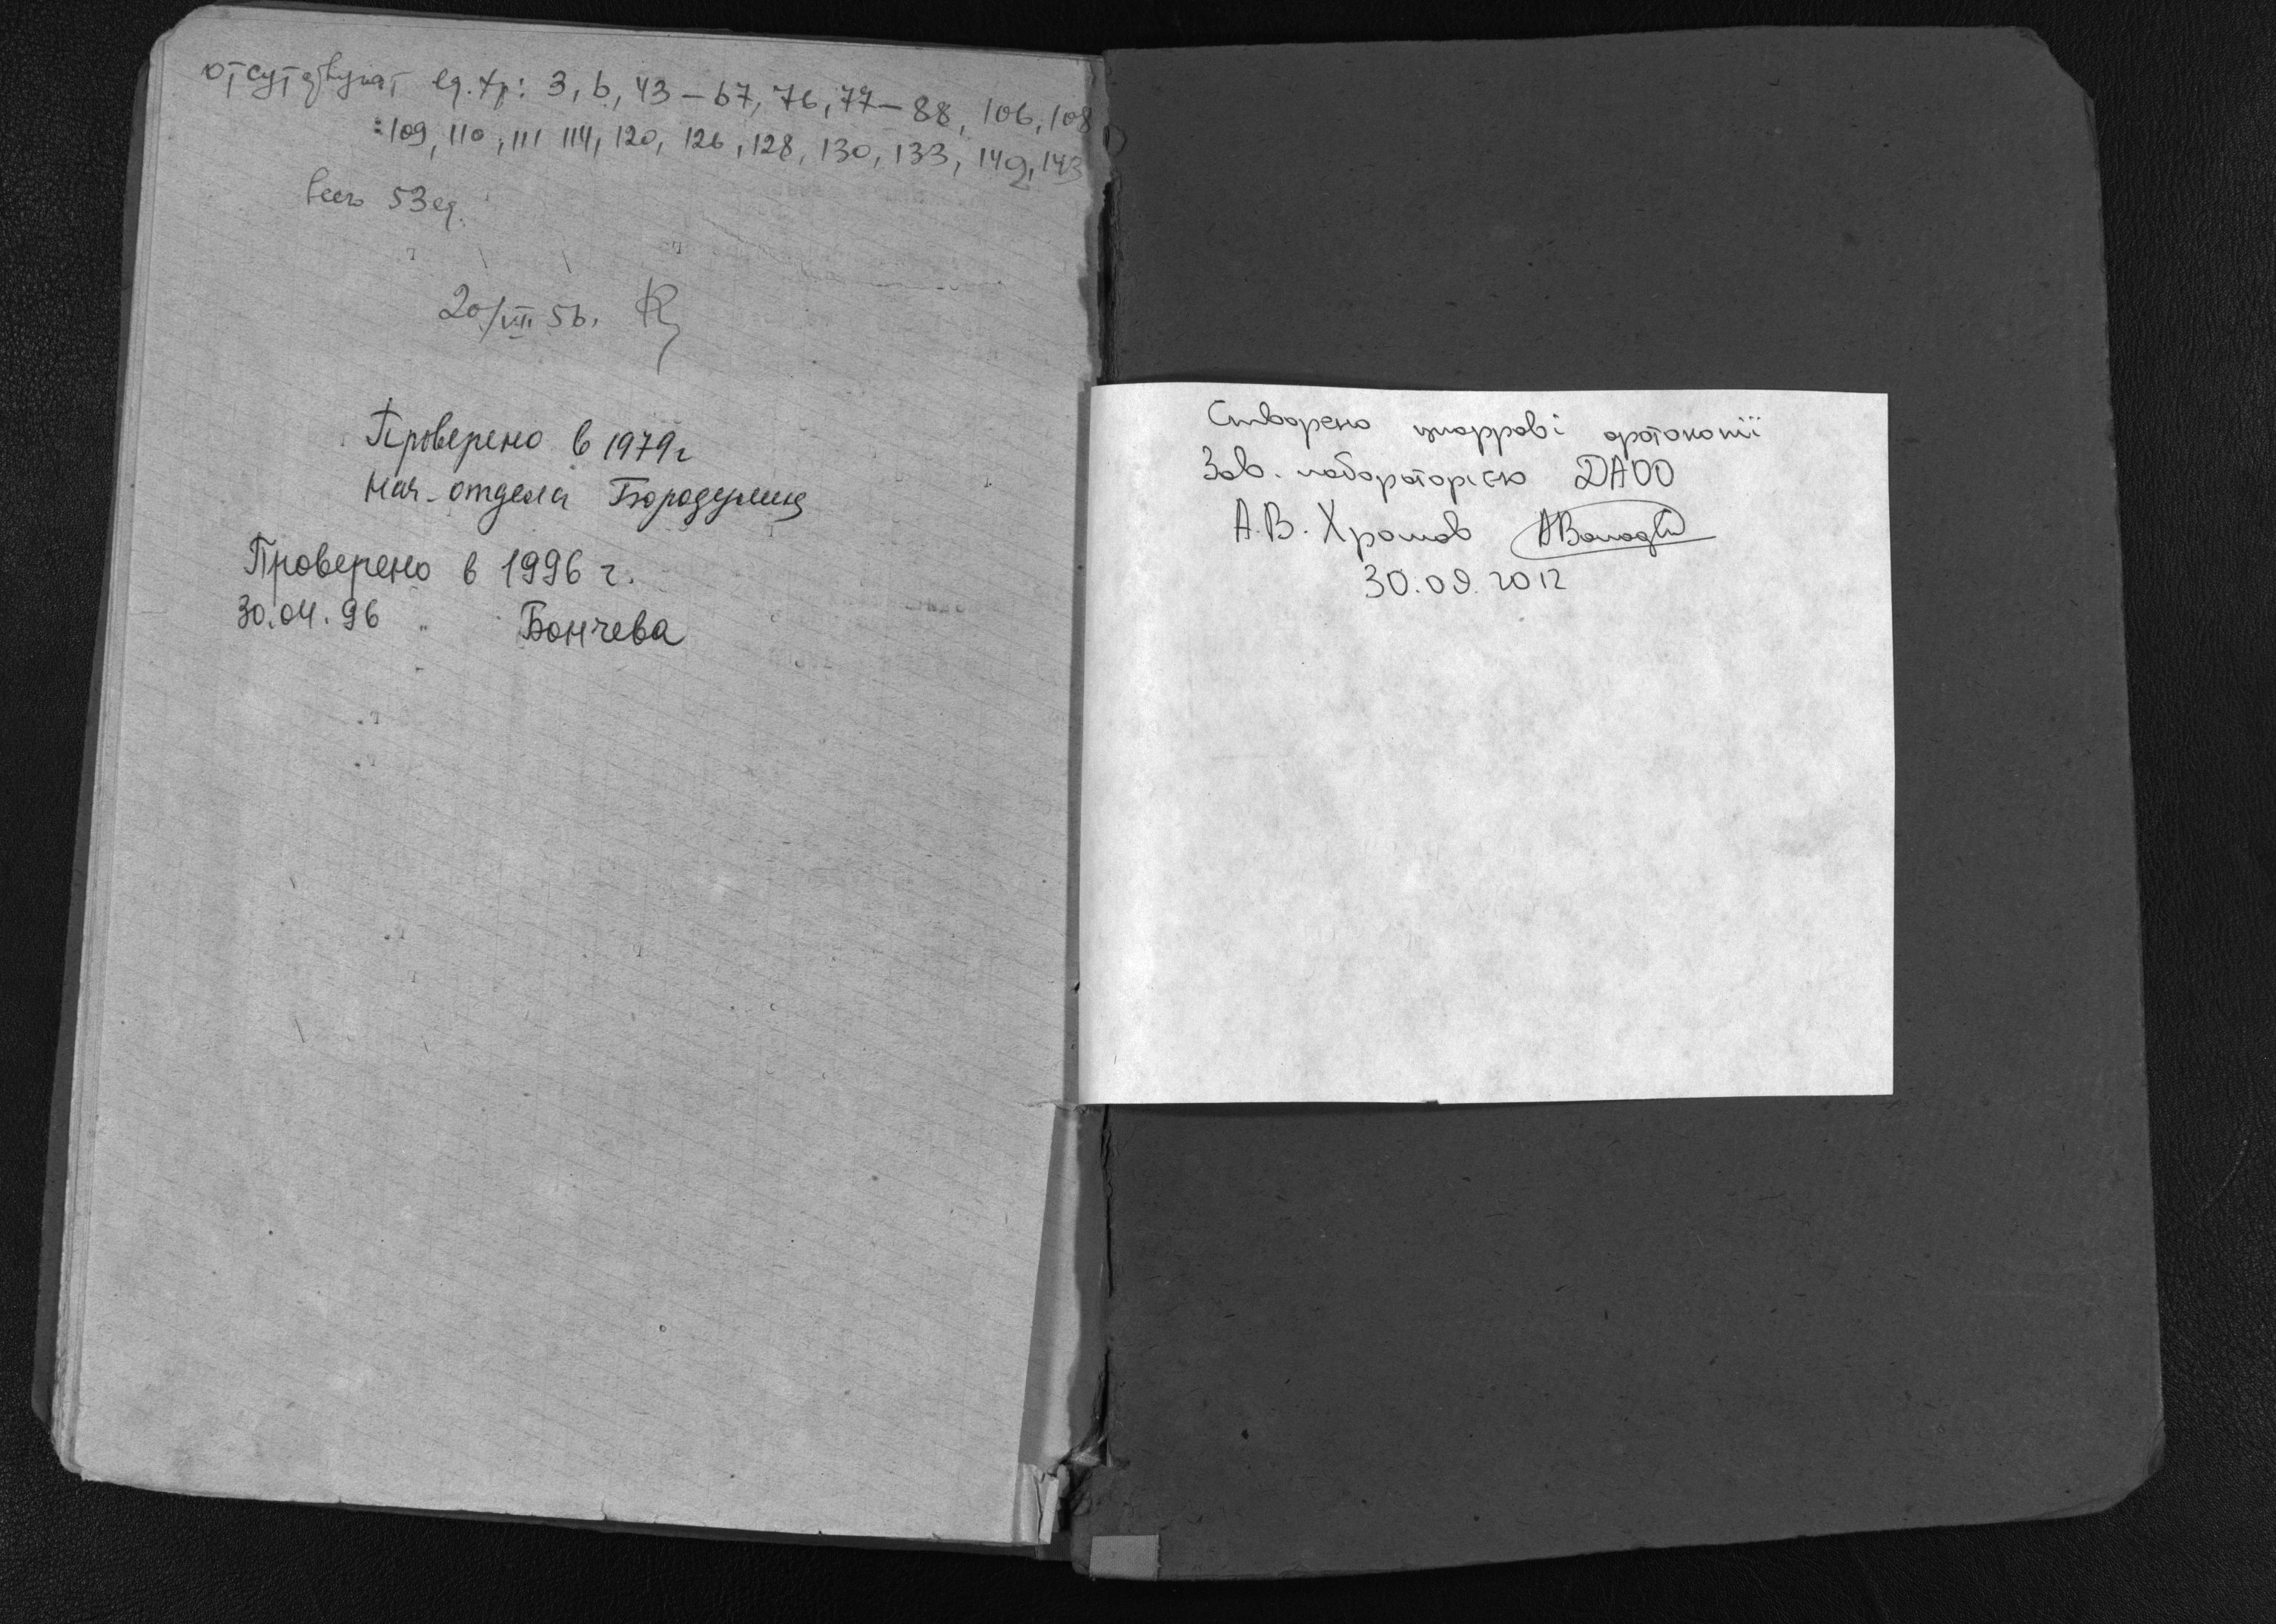 отсутствуют ед. хр: 3, 6, 43 – 67, 76, 77 – 88, 106, 108
109, 110, 111 114, 120, 126, 128, 130, 133, 142, 143
всего 53 ед.
20/VIII 56.
Проверено в 1979 г
Нач. отдела
Проверено в 1996 г.
30.04.96 Бончева
Створено цифрові фотокопії
Зав. лабораторією ДАОО
А.В. Хромов
30.09.2012